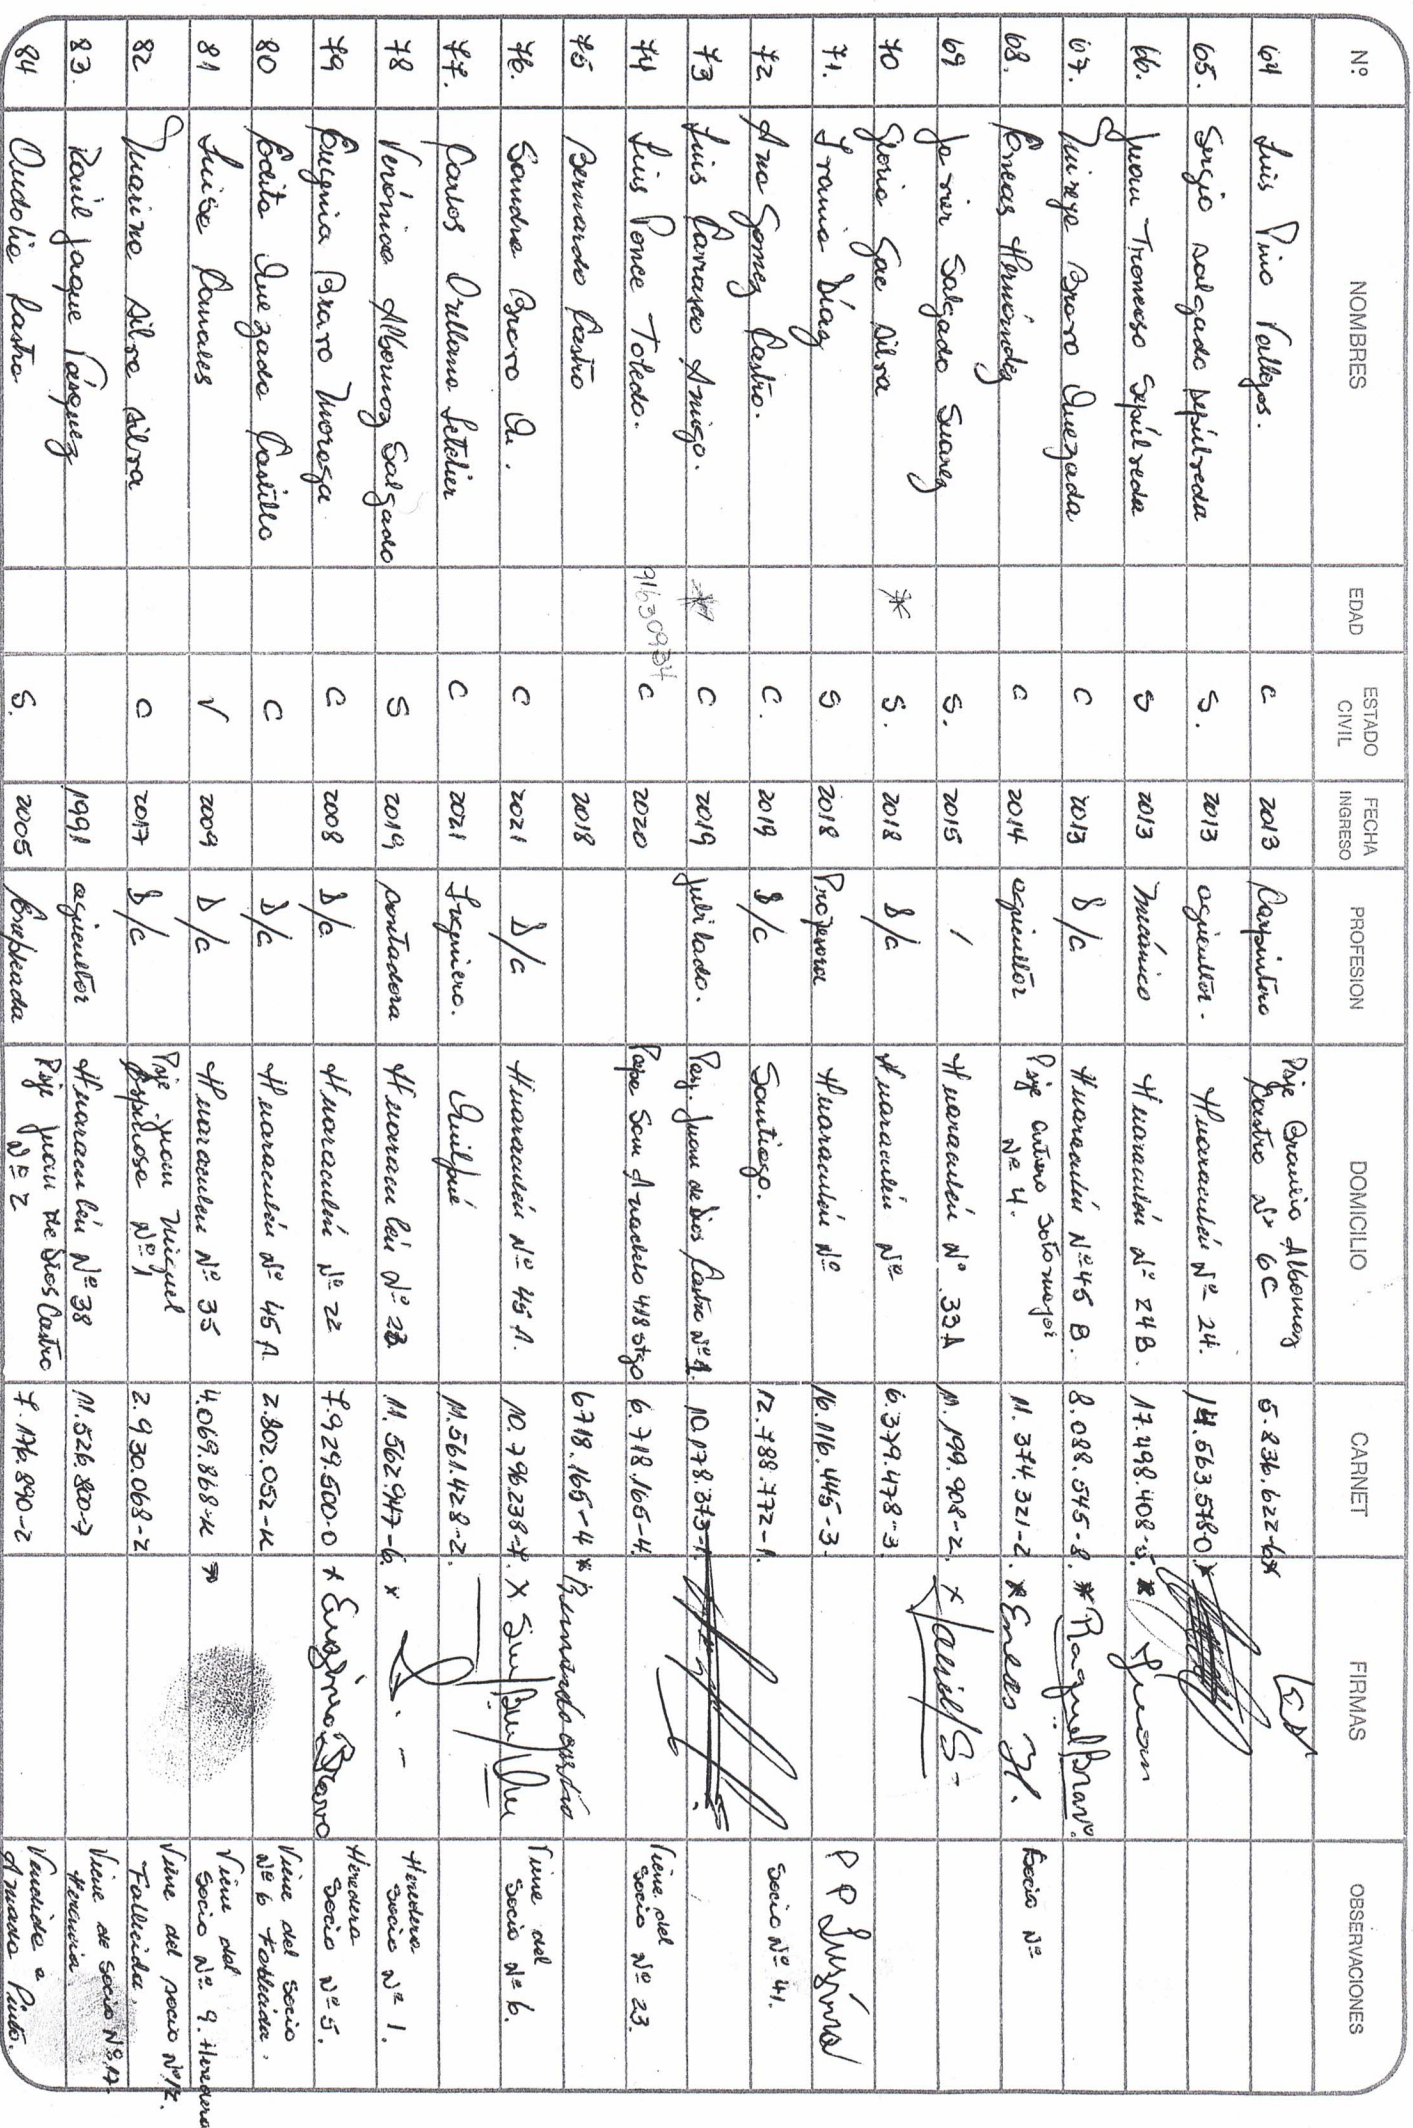 Nº NOMBRES EDAD ESTADO CIVIL FECHA INGRESO PROFESION DOMICILIO CARNET FIRMAS OBSERVACIONES
64 Luis Pino Vallejos. C 2013 Carpintero Psje Braulio Albornoz Castro Nº 6C 5.836.622-6x
65. Sergio Salgado Sepúlveda S. 2013 agricultor. Huaraculén Nº 24. 14.563.578-0 x
66. Juan Troncoso Sepúlveda S 2013 Mecánico Huaraculén Nº 24B. 17.498.408-5. x Juan
67. Mireya Bravo Quezada C 2013 D/C Huaraculén Nº 45 B. 8.088.545-8. * Raquel Bravo.
68. Eneas Hernández C 2014 agricultor Psje Antero Sotomayor Nº 4. 11.374.321-2. * Eneas H. Socio Nº
69 Javier Salgado Suarez S. 2015 / Huaraculén Nº 33A 11.199.908-2. x Javiel S
70 Gloria Gae Silva * S. 2018 D/C Huaraculén Nº 6.379.478-3
71. Irania Díaz S 2018 Profesora Huaraculén Nº 16.116.445-3. P P Luzgínia
72. Ana Gomez Castro. C. 2019 D/C Santiago. 12.788.772-1. Socio Nº 41.
73 Luis Carrasco Amigo. * C 2019 Jubilado. Psj. Juan de Dios Castro Nº 1. 10.178.373-1.
74 Luis Ponce Toledo. 91630934 C 2020 Papa San Anacleto 418 Stgo 6.718.165-4. Viene del Socio Nº 23.
75 Bernardo Castro 2018 6718.165-4 * Bernardo castro
76. Sandra Bravo Q. C 2021 D/C Huaraculén Nº 45 A. 10.796.238-7. x Viene del Socio Nº 6.
77. Carlos Orellana Letelier C 2021 Ingeniero. Quilpué 11.561.428-2.
78 Verónica Albornoz Salgado S 2019 contadora Huaraculén Nº 23 11.562.947-6. x Heredera Socio Nº 1.
79 Eugenia Bravo Moraga C 2008 D/C Huaraculén Nº 22 7.929.500-0 x Eugenia Bravo Heredera Socio Nº 5.
80 Edita Quezada Castillo C 2009 D/C Huaraculén Nº 45 A. 2.802.052-K Viene del Socio Nº 6 Fallecida.
81 Luisa Canales V 2009 D/C Huaraculén Nº 35 4.069.868-K Viene del Socio Nº 9. Heredera
82 Marina Silva Silva C 2017 D/C Psje. Juan Miguel Espinosa Nº 1 2.930.068-2 Viene del socio Nº 12. Fallecida.
83. Raúl Jaque Vásquez 1991 agricultor Huaraculén Nº 38 11.526.800-7 Viene de Socio Nº 17- Herencia
84 Audolia Castro S. 2005 Empleada Psje Juan de Dios Castro Nº 2 7.176.890-2 Vendida a Amada Pinto.